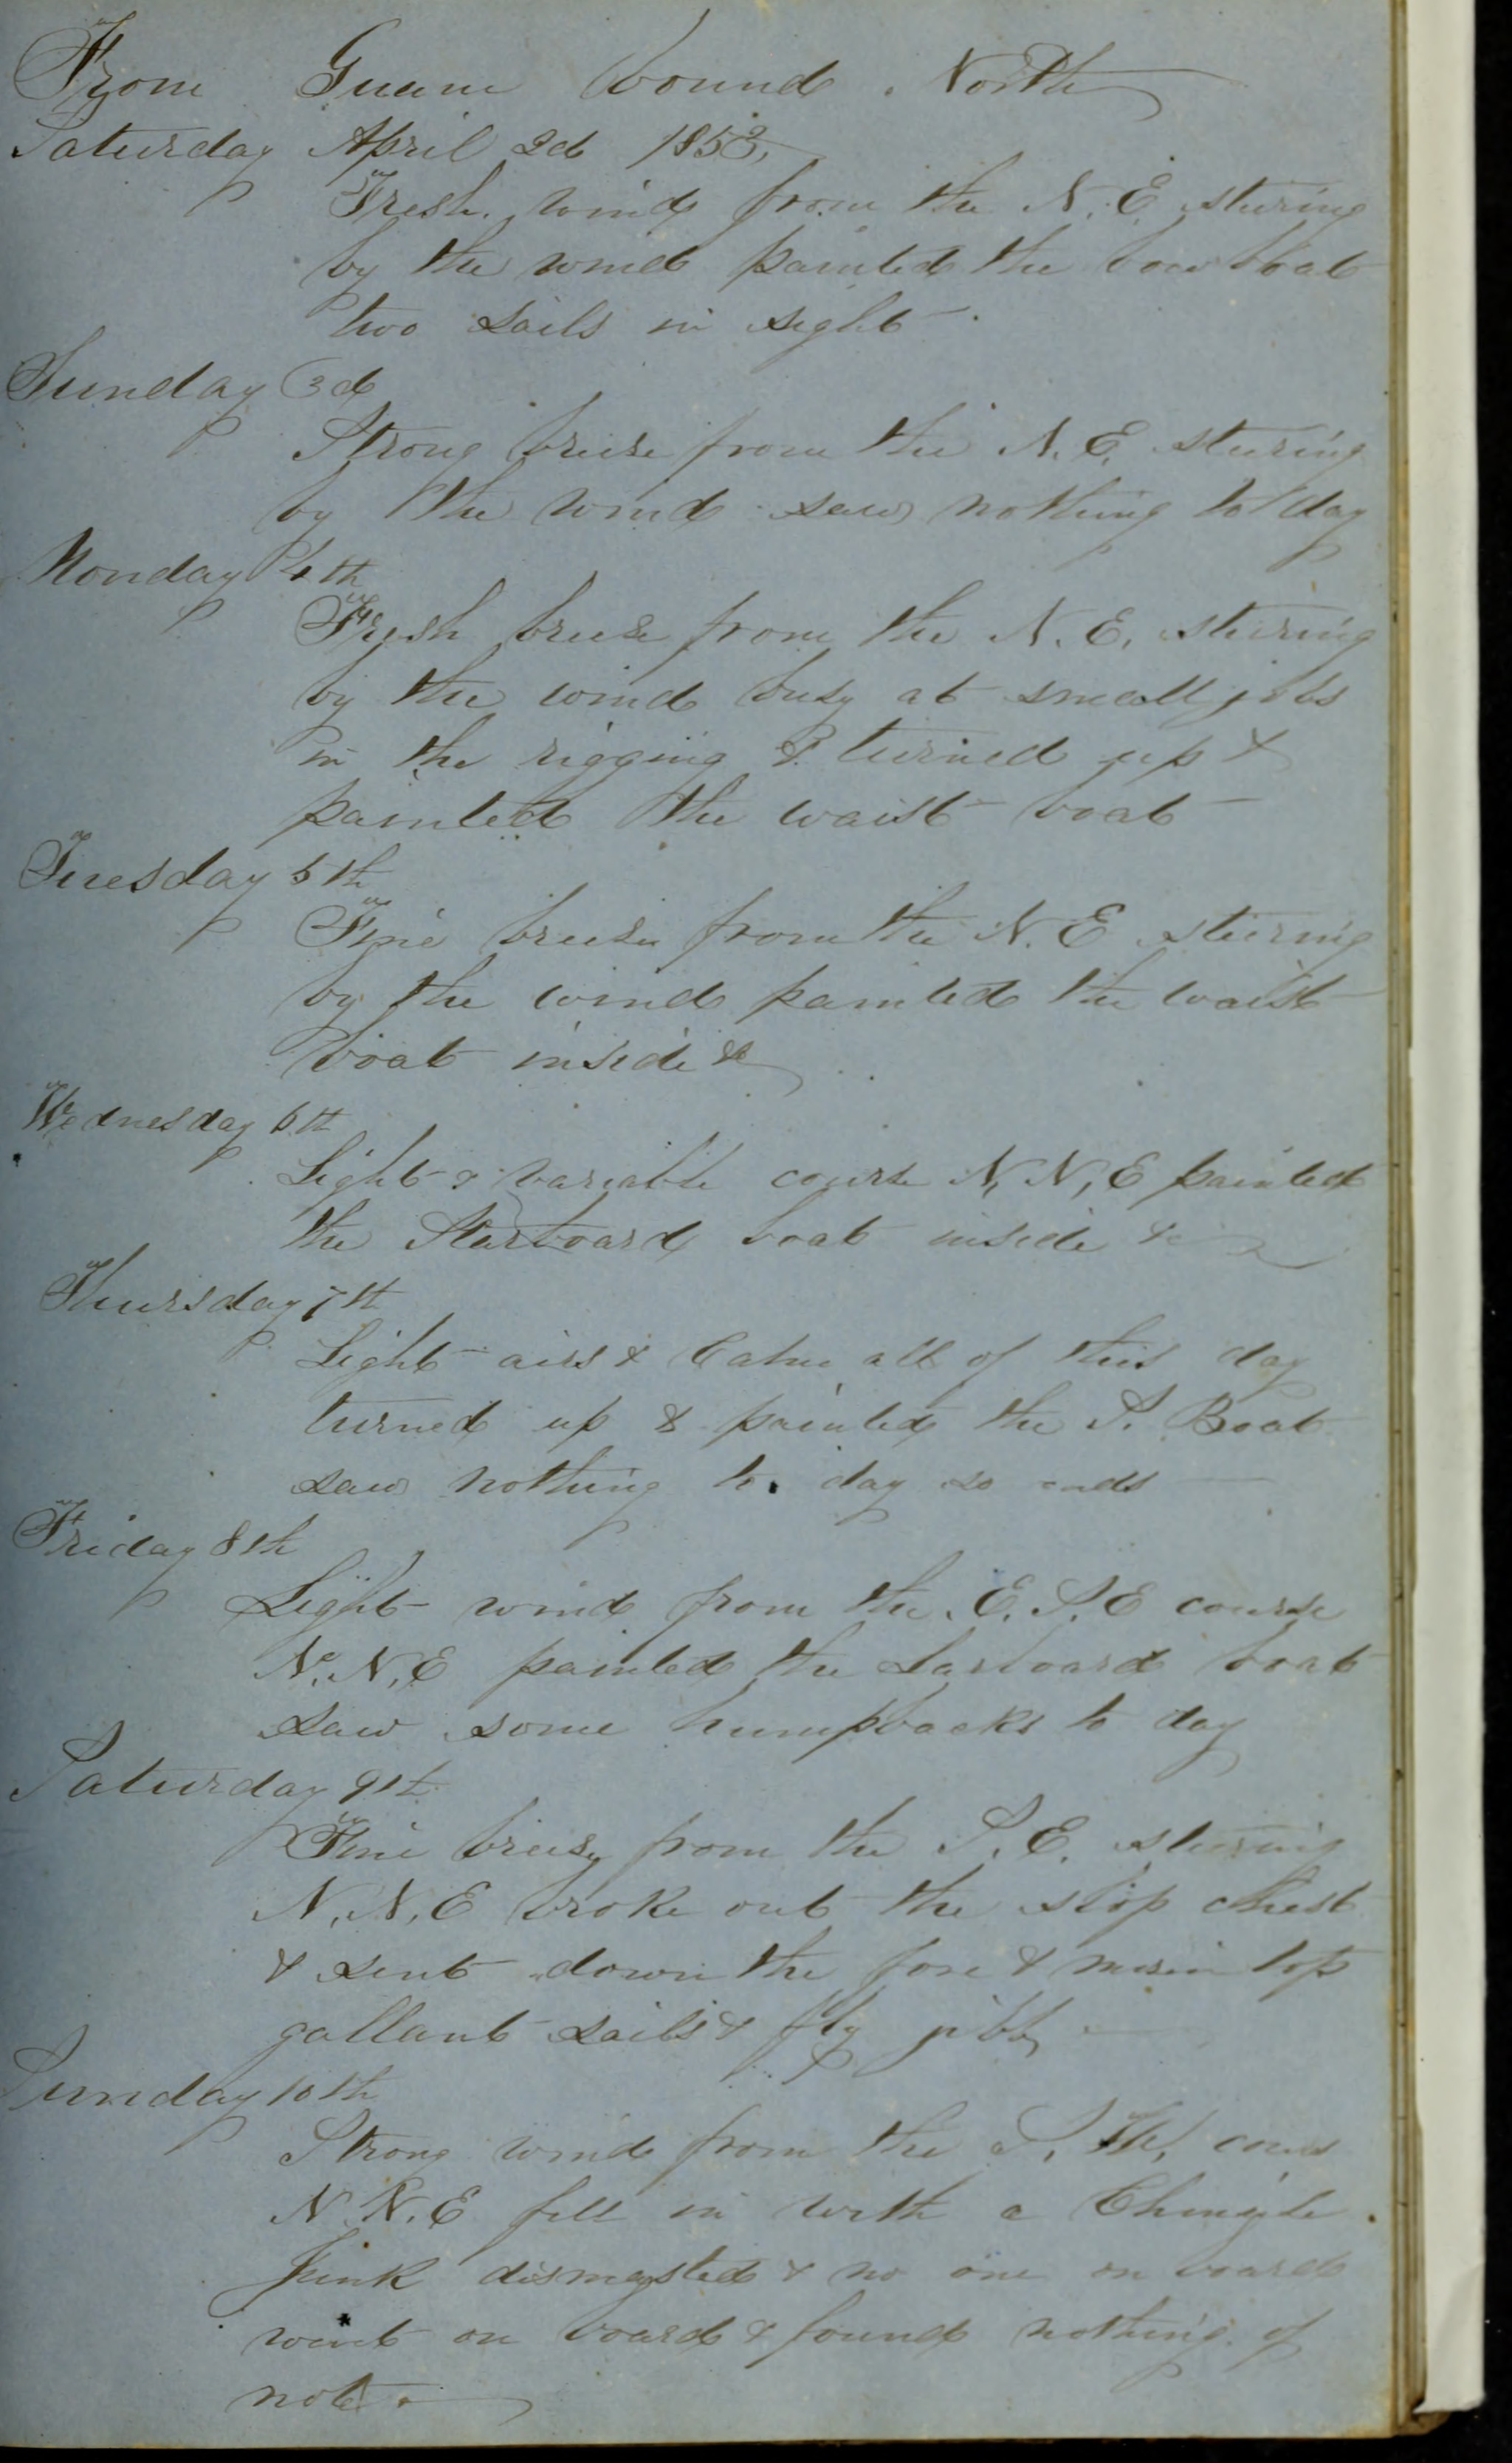 From Guam bound North
Saturday April 2d 1853,
Fresh wind from the N. E. stering
by the wind painted the bow boat
two sails in sight
Sunday 3d
Strong breise from the N. E. stering
by the wind saw nothing to day
Monday 4th
Fresh breise from the N. E. stering
by the wind busy at small jobs
in the rigging & turned up &
painted the waist boat
Tuesday 5th
Fine breise from the N. E stering
by the wind painted the waist
boat inside &c
Wednesday 6th
Light & variable course N, N, E painted
the Starboard boat inside &c
Thursday 7th
Light airs & Calm all of this day
turned up & painted the S. Boat
saw nothing to day so ends
Friday 8th
Light wind from the E. S. E course
N. N, E painted the Larboard boat
saw some humpbacks to day
Saturday 9th
Fine breise from the S. E. stering
N, N, E broke out the slop chest
& sent down the fore & main top
gallant sails & fly jibb
Sunday 10th
Strong wind from the S. W. cours
N N. E fell in with a
Junk dismasted & no one on board
went on board & found nothing of
note